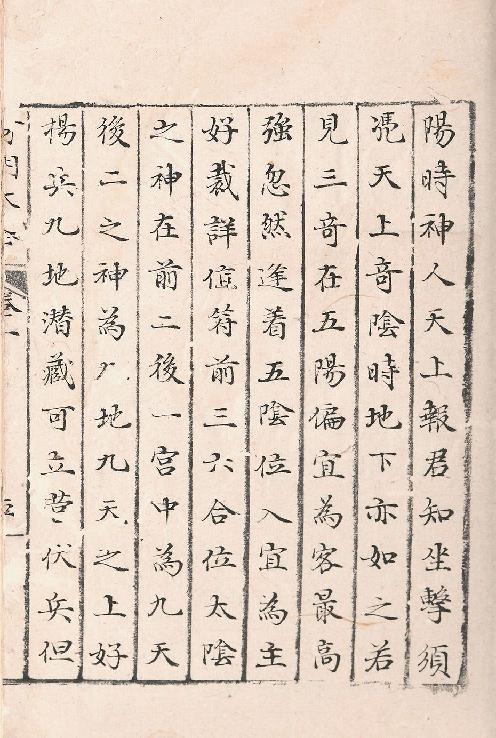 陽時神人天上報君知坐擊須
憑天上奇陰時地下亦如之若
見三奇在五陽偏宜為客最高
強忽然逢着五陰位入宜為主
好裁詳值符前三六合位太陰
之神在前二後一宮中為九天
後二之神為九地九天之上好
楊兵九地潜藏可立营伏兵但